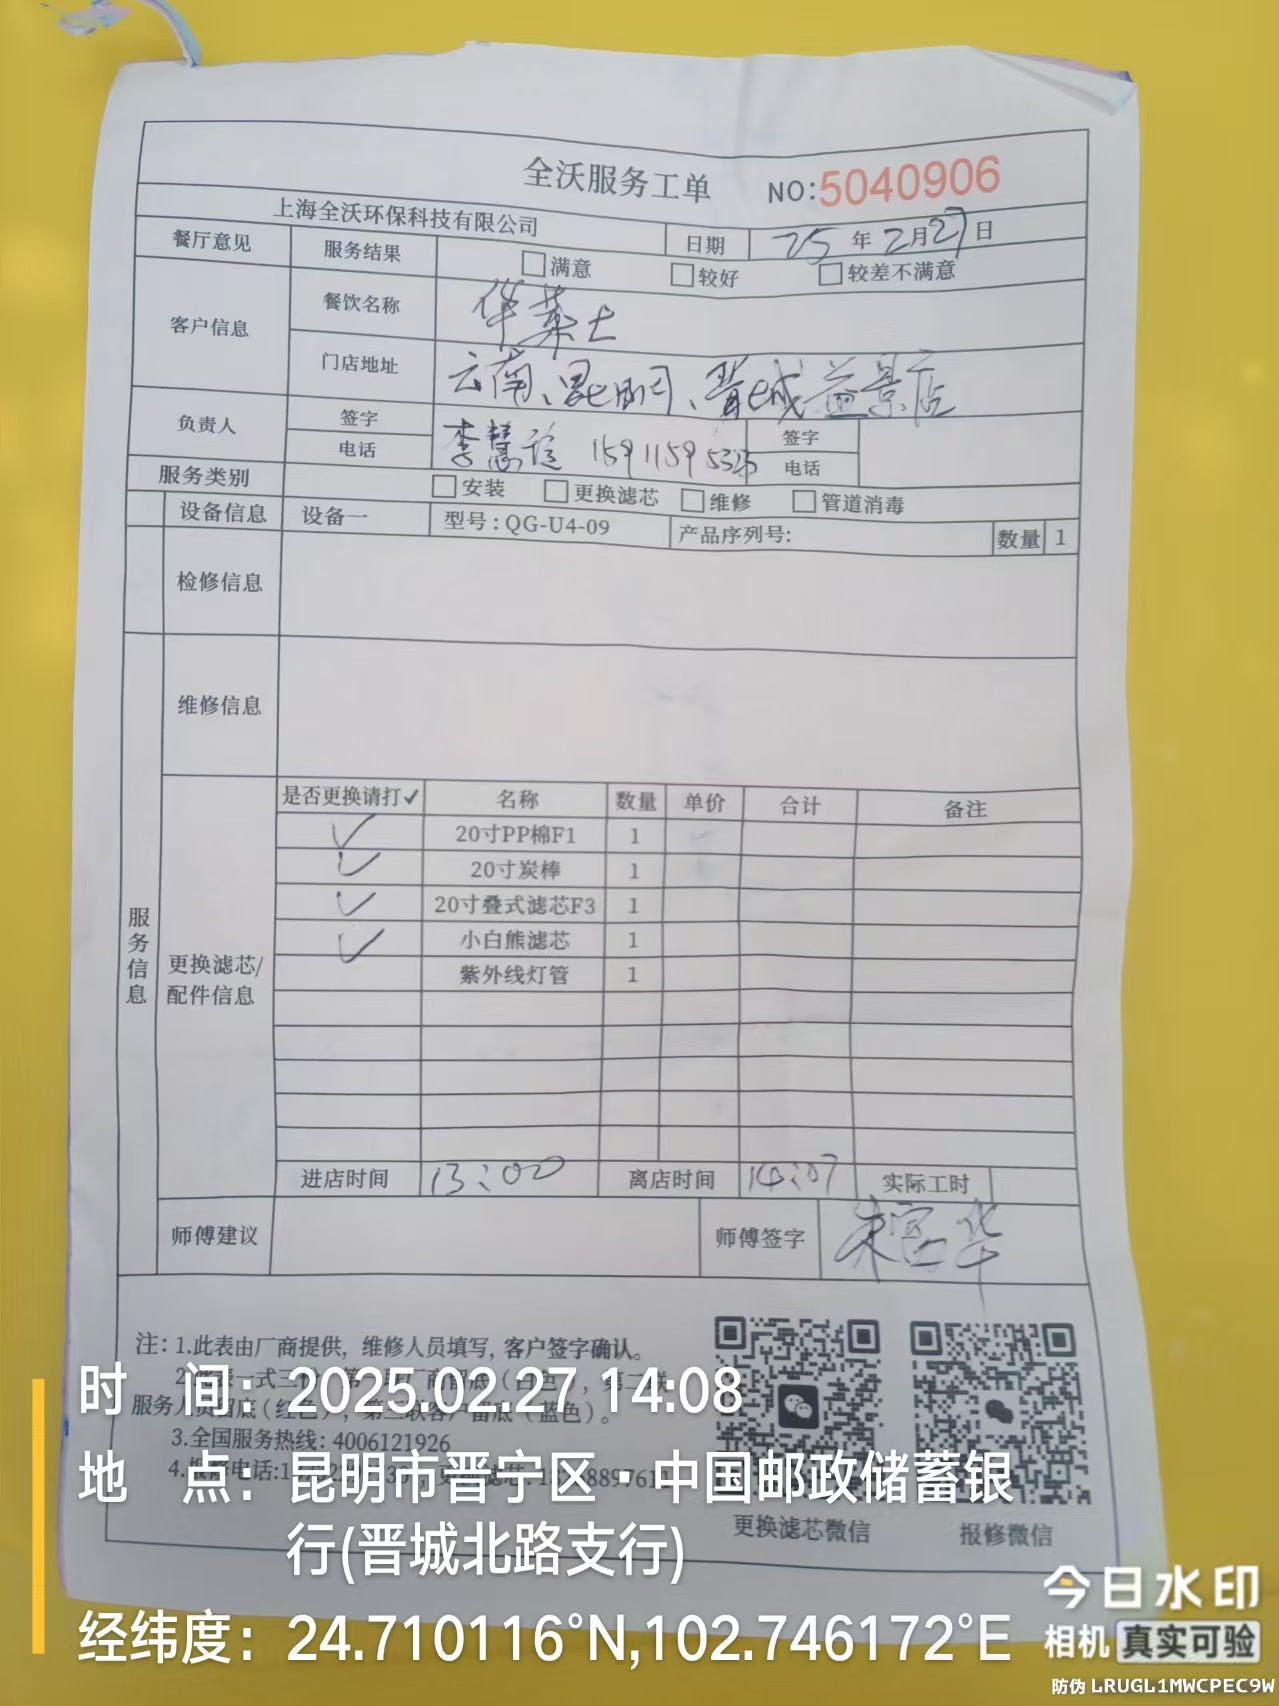 全沃服务工单 NO:5040906
上海全沃环保科技有限公司 日期 25年2月27日
餐厅意见 服务结果 满意 较好 较差不满意
客户信息 餐饮名称 华莱士
门店地址 云南、昆明、晋城益景店
负责人 签字 李慧 签字
电话 电话
服务类别 安装 更换滤芯 维修 管道消毒
设备信息 设备一 型号:QG-U4-09 产品序列号: 数量 1
检修信息
维修信息
服务信息
更换滤芯/
配件信息
是否更换请打✓ 名称 数量 单价 合计 备注
✓ 20寸PP棉F1 1
✓ 20寸炭棒 1
✓ 20寸叠式滤芯F3 1
✓ 小白熊滤芯 1
紫外线灯管 1
进店时间 13:00 离店时间 14:07 实际工时
师傅建议 师傅签字 朱富华
注:1.此表由厂商提供,维修人员填写,客户签字确认。
3.全国服务热线:4006121926
更换滤芯微信 报修微信
时 间:2025.02.27 14:08
地 点:昆明市晋宁区·中国邮政储蓄银
行(晋城北路支行)
经纬度:24.710116°N,102.746172°E
今日水印
相机 真实可验
防伪 LRUGL1MWCPEC9W